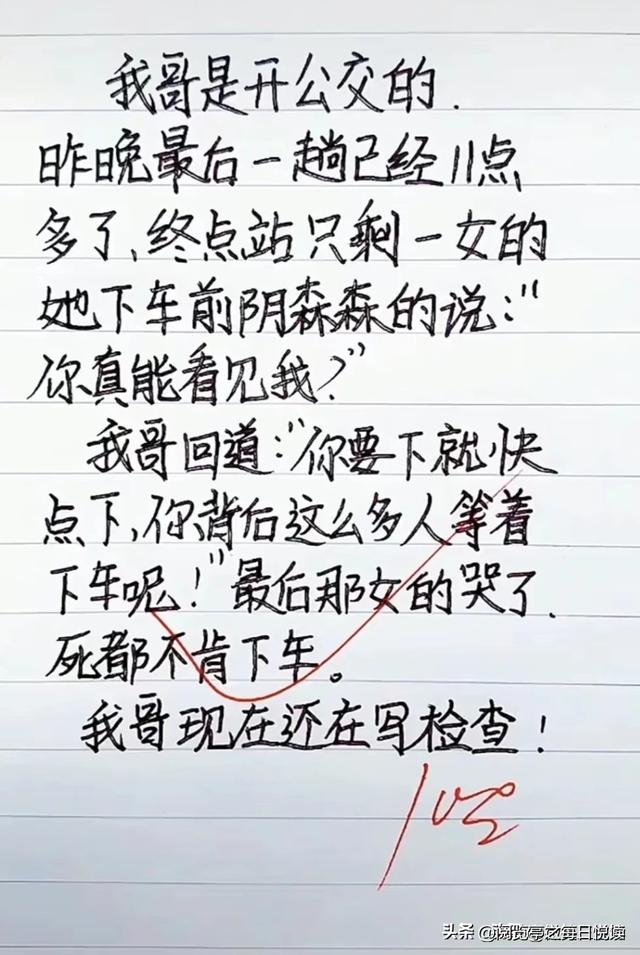 我哥是开公交的.
昨晚最后一趟已经11点
多了,终点站只剩一女的
她下车前阴森森的说:“
你真能看见我?”
我哥回道:“你要下就快
点下,你背后这么多人等着
下车呢!”最后那女的哭了.
死都不肯下车。
我哥现在还在写检查!
头条